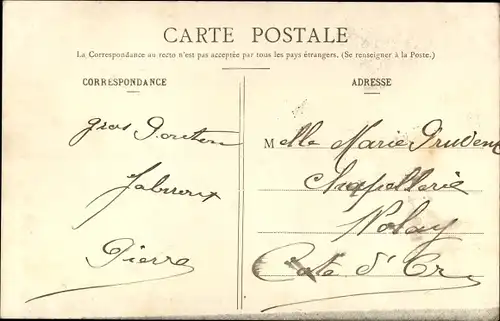 CARTE POSTALE
La Correspondance au recto n'est pas acceptée par tous les pays étrangers. (Se renseigner à la Poste.)
CORRESPONDANCE
gros
Pierre
ADRESSE
Melle Marie Prudent
Chapellerie
Nolay
Côte d'Or